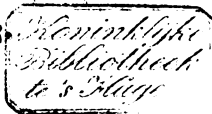 Koninklijke
Bibliotheek
te 's Hage